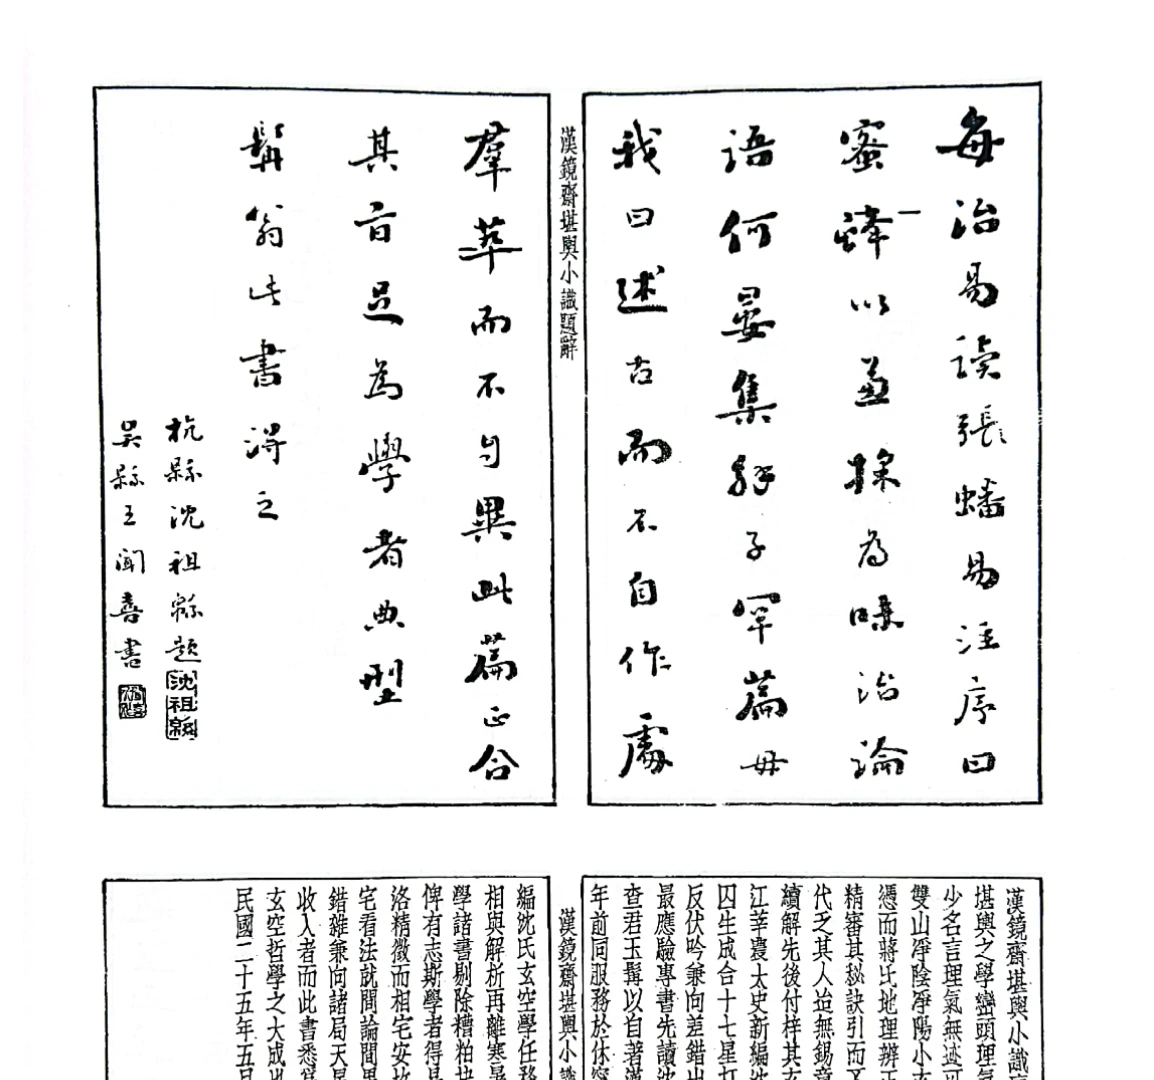 每治易讀張蟠易注序曰
蜜蜂以兼採為味治論
語何晏集解子罕篇毋
我曰述古而不自作處
漢鏡齋堪輿小識題辭
羣萃而不自異此篇正合
其旨足為學者典型
髯翁此書得之
杭縣沈祖緜題
沈祖緜
吳縣王聞喜書
漢鏡齋堪輿小識
堪輿之學巒頭理氣
少名言理氣無迹可
雙山淨陰淨陽小玄
憑而蔣氏地理辨正
精審其秘訣引而
代乏其人迨無錫章
續解先後付梓其玄
江莘農太史新編沈
囚生成合十七星打
反伏吟兼向差錯出
最應驗專書先讀沈
查君玉髯以自著漢
年前同服務於休寧
漢鏡齋堪輿小識
編沈氏玄空學任務
相與解析再離寒暑
學諸書剔除糟粕抉
俾有志斯學者得具
洛精微而相宅安
宅看法就間論間界
錯雜兼向諸局天星
收入者而此書悉為
玄空哲學之大成也
民國二十五年五月